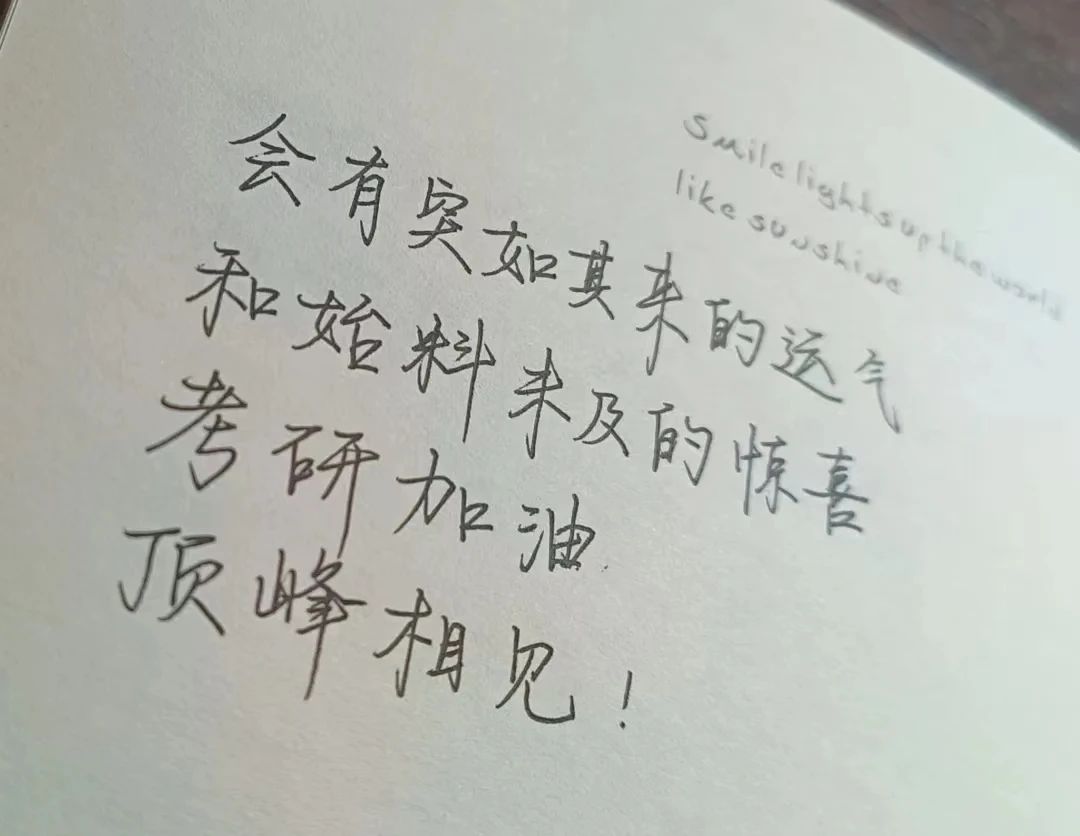 Smile lights up the world
like sunshine
会有突如其来的运气
和始料未及的惊喜
考研加油
顶峰相见！